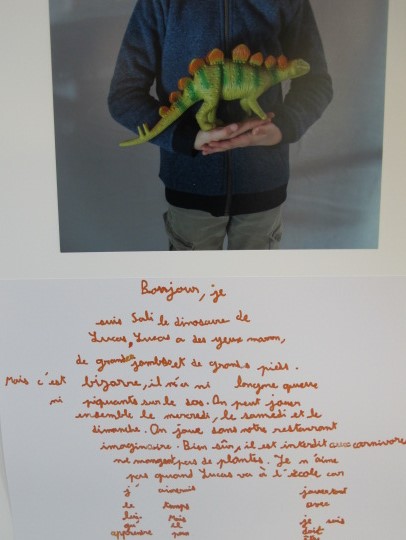 Bonjour, je
suis Sati le dinosaure de
Lucas, Lucas a des yeux marron,
de grandes jambes et de grands pieds.
Mais c'est bizarre, il n'a ni longue queue
ni piquants sur le dos. On peut jouer
ensemble le mercredi, le samedi et le
dimanche. On joue dans votre restaurant
imaginaire. Bien sûr, il est interdit aux carnivores
ne mangent pas de plantes. Je n'aime
pas quand Lucas va à l'école car
j' aimerais jouer tout
le temps avec
lui. Mais je sais
qu' il doit
apprendre